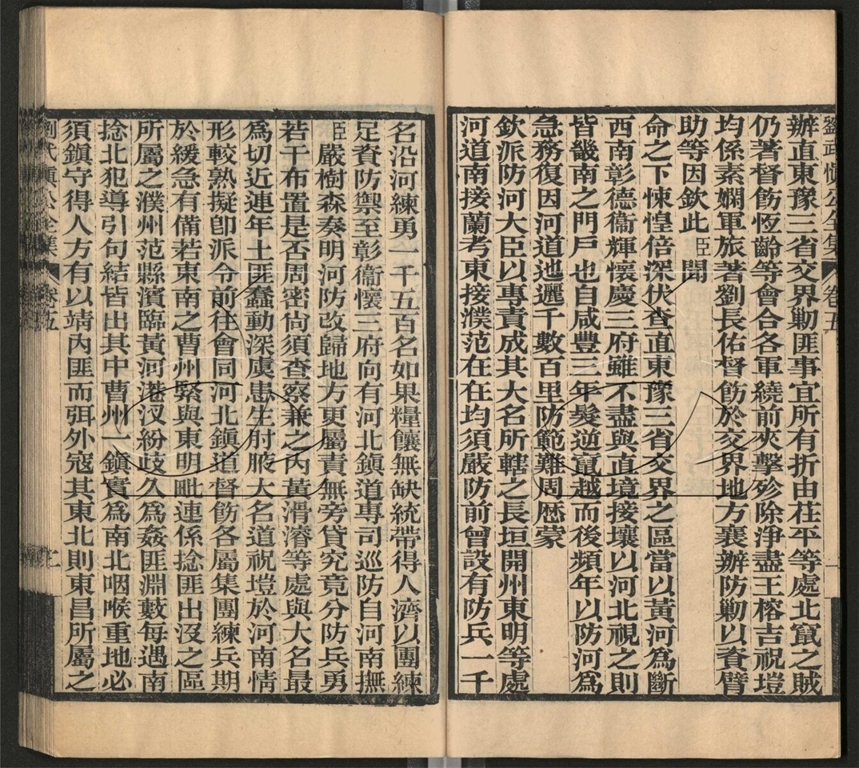 劉武慎公全集 卷五
辦直東豫三省交界勦匪事宜所有折由茌平等處北竄之賊
仍著督飭恆齡等會合各軍繞前夾擊殄除淨盡王榕吉祝塏
均係素嫻軍旅著劉長佑督飭於交界地方襄辦防勦以資臂
助等因欽此臣聞
命之下悚惶倍深伏查直東豫三省交界之區當以黃河為斷
西南彰德衞輝懷慶三府雖不盡與直境接壤以河北視之則
皆畿南之門戶也自咸豐三年髮逆竄越而後頻年以防河為
急務復因河道迆邐千數百里防範難周歷蒙
欽派防河大臣以專責成其大名所轄之長垣開州東明等處
河道南接蘭考東接濮范在在均須嚴防前曾設有防兵一千
名沿河練勇一千五百名如果糧饟無缺統帶得人濟以團練
足資防禦至彰衞懷三府向有河北鎮道專司巡防自河南撫
臣嚴樹森奏明河防改歸地方更屬責無旁貸究竟分防兵勇
若干布置是否周密尙須查察兼之內黃滑濬等處與大名最
為切近連年土匪蠢動深虞患生肘腋大名道祝塏於河南情
形較熟擬卽派令前往會同河北鎮道督飭各屬集團練兵期
於緩急有備若東南之曹州緊與東明毗連係捻匪出沒之區
所屬之濮州范縣濱臨黃河港汊紛歧久為姦匪淵藪每遇南
捻北犯導引句結皆出其中曹州一鎮實為南北咽喉重地必
須鎮守得人方有以靖內匪而弭外寇其東北則東昌所屬之
劉武慎公全集 卷五